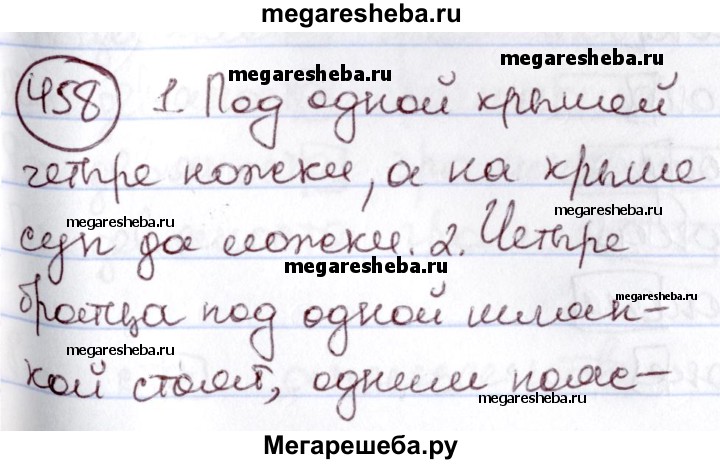 megaresheba.ru
megaresheba.ru
megaresheba.ru
458 1. Под одной крышей
четыре ножки, а на крыше
megaresheba.ru
megaresheba.ru
суп да ложки. 2. Четыре
megaresheba.ru
братца под одной шляп-
megaresheba.ru
megaresheba.ru
кой стоят, одним пояс-
megaresheba.ru
Мегарешеба.ру